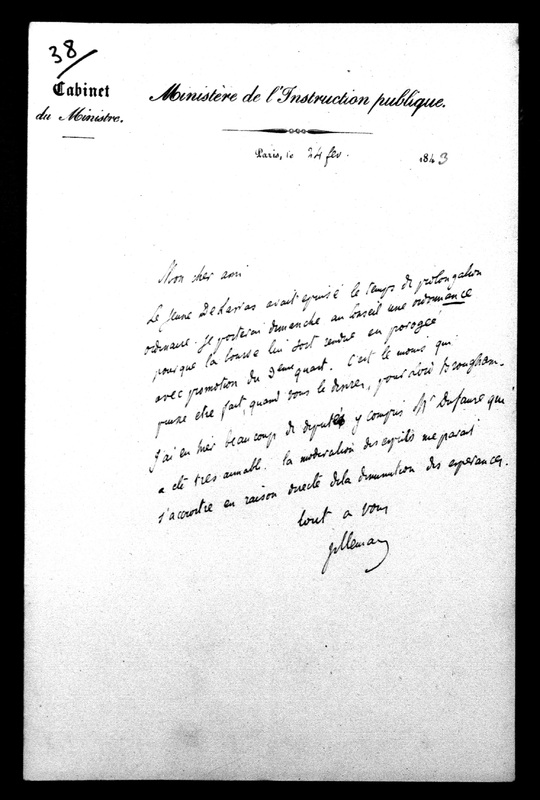 38
Cabinet
du Ministre.
Ministère de l'Instruction publique.
Paris, le 24 fev. 1843
Mon cher ami
Le jeune De Larias avait epuisé le temps de prolongation
ordinaire. Je porterai dimanche au conseil une ordonnance
pour que la bourse lui soit rendue en
avec promotion du 3eme quart. C'est le moins qui
puisse etre fait, quand vous le desirez, pour Lord Brougham.
J'ai eu hier beaucoup de deputés y compris Mr Dufaure qui
a eté tres aimable. la moderation des esprits me parait
s'accroitre en raison directe de la diminution des esperances.
tout a vous
Villemain